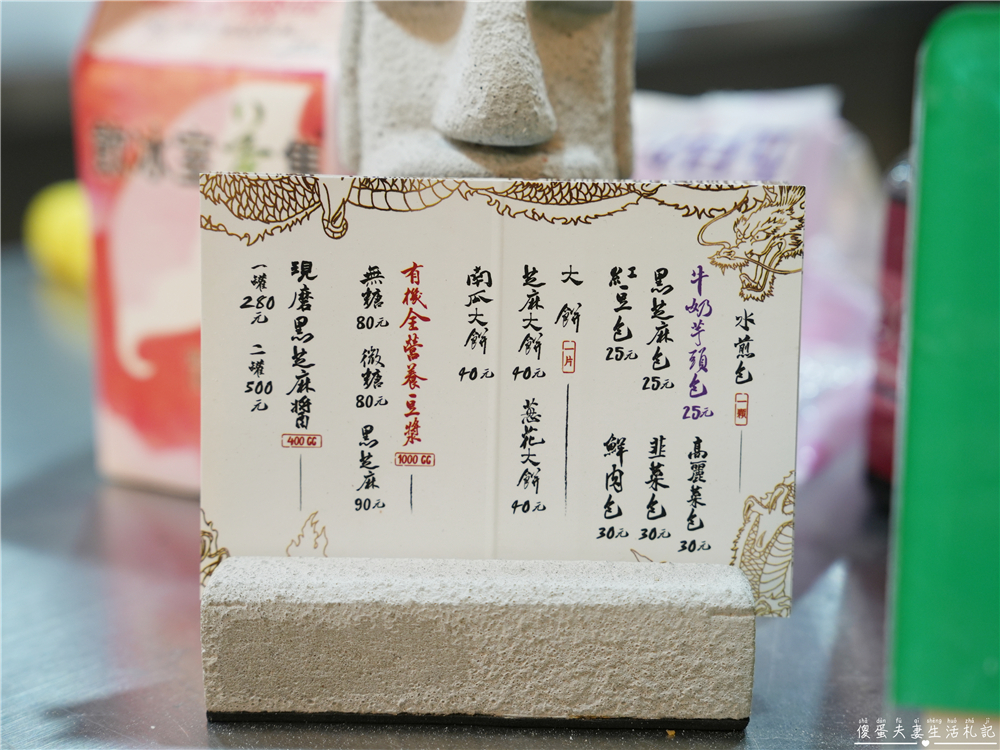 水煎包 一顆
牛奶芋頭包 25元 高麗菜包 30元
黑芝麻包 25元 韭菜包 30元
紅豆包 25元 鮮肉包 30元
大餅 一片
芝麻大餅 40元 蔥花大餅 40元
南瓜大餅 40元
有機全營養豆漿 1000CC
無糖 80元 微糖 80元 黑芝麻 90元
現磨黑芝麻醬 400CC
一罐280元 二罐500元
shǎ dàn fū qī shēng huó zhá jì
傻蛋夫妻生活札記